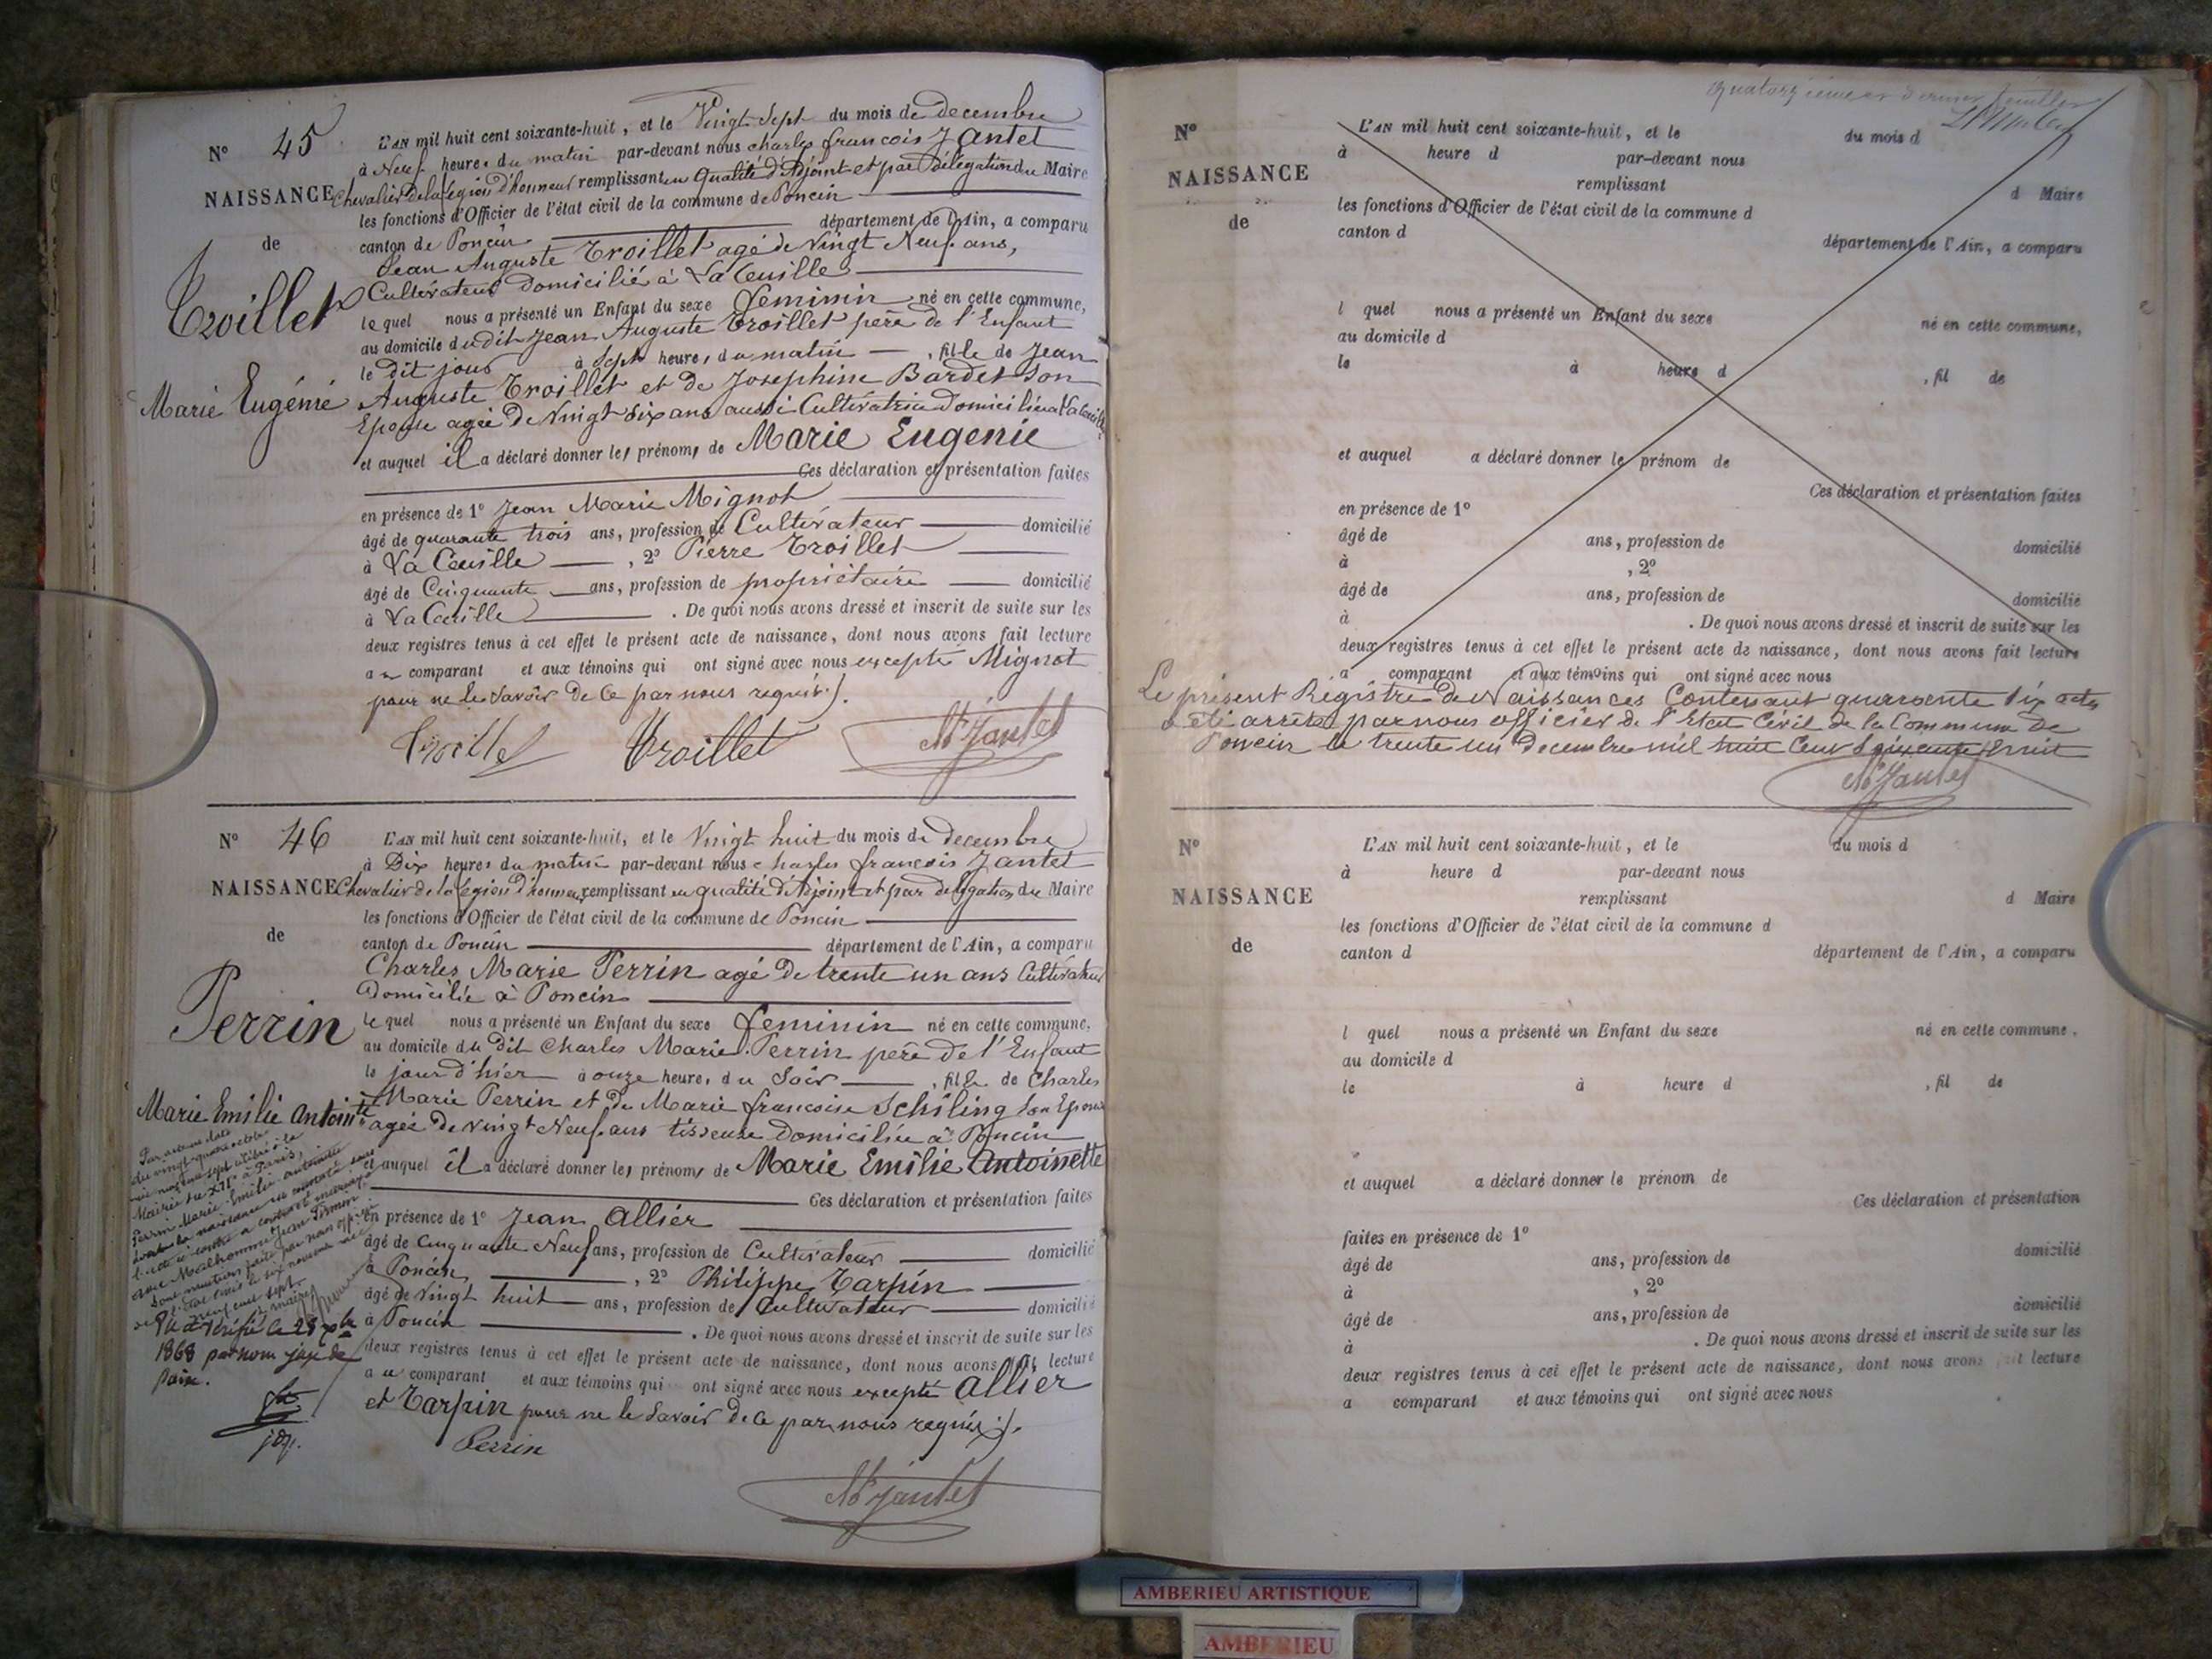 N° 45
NAISSANCE
de
Troillet
Marie Eugénie
L'AN mil huit cent soixante-huit, et le Vingt Sept du mois de decembre
à Neuf heures du matin par-devant nous charles francois Jantet
Chevalier de la Légion d'honneur remplissant en qualité d'Adjoint et par délégation du Maire
les fonctions d'Officier de l'état civil de la commune de Poncin
canton de Poncin département de l'Ain, a comparu
Jean Auguste Troillet agé de Vingt Neuf ans,
Cultivateur domicilié à La Cueille
le quel nous a présenté un Enfant du sexe feminin né en cette commune,
au domicile du dit Jean Auguste Troillet père de l'Enfant
le dit jour à Sept heures du matin , fille de Jean
Auguste Troillet et de Josephine Bardet Son
Epouse agée de Vingt Six ans aussi Cultivatrice Domiciliée à La Cueille
et auquel il a déclaré donner les prénoms de Marie Eugenie
Ces déclaration et présentation faites
en présence de 1° Jean Marie Mignot
âgé de quarante trois ans, profession de Cultivateur domicilié
à La Cueille , 2° Pierre Troillet
âgé de Cinquante ans, profession de propriétaire domicilié
à La Cueille . De quoi nous avons dressé et inscrit de suite sur les
deux registres tenus à cet effet le présent acte de naissance, dont nous avons fait lecture
au comparant et aux témoins qui ont signé avec nous excepté Mignot
pour ne le Savoir de ce par nous requis ./.
Troillet Troillet Jantet
N° 46
NAISSANCE
de
Perrin
Marie Emilie Antointe
L'AN mil huit cent soixante-huit, et le Vingt huit du mois de decembre
à Dix heures du matin par-devant nous charles francois Jantet
Chevalier de la Légion d'honneur remplissant en qualité d'Adjoint et par délégation du Maire
les fonctions d'Officier de l'état civil de la commune de Poncin
canton de Poncin département de l'Ain, a comparu
Charles Marie Perrin agé de trente un ans Cultivateur
Domicilié à Poncin
le quel nous a présenté un Enfant du sexe feminin né en cette commune,
au domicile du dit Charles Marie Perrin père de l'Enfant
le jour d'hier à onze heures du Soir , fille de Charles
Marie Perrin et de Marie francoise Schiling Son Epouse
agée de vingt Neuf ans tisseuse Domiciliée à Poncin
et auquel il a déclaré donner les prénoms de Marie Emilie Antoinette
Ces déclaration et présentation faites
en présence de 1° Jean Allier
âgé de Cinquante Neuf ans, profession de Cultivateur domicilié
à Poncin , 2° Philippe Tarpin
âgé de Vingt huit ans, profession de Cultivateur domicilié
à Poncin . De quoi nous avons dressé et inscrit de suite sur les
deux registres tenus à cet effet le présent acte de naissance, dont nous avons lecture
au comparant et aux témoins qui ont signé avec nous excepté Allier
et Tarpin pour ne le Savoir de ce par nous requis ./.
Perrin
Jantet
Par acte en date
du vingt-quatre octobre
mil neuf cent sept célébré à la
Mairie du XII à Paris,
Perrin Marie Emilie antoinette
dont la naissance est constatée sous
l'acte ci-contre a contracté mariage
avec Malhomme Jean Firmin
Dont mention faite par nous officier
de l'état civil le six novembre mil
neuf cent sept.
maire
Vu et Vérifié le 28 xbre
1868 par nous juge de
paix.
N°
NAISSANCE
de
L'AN mil huit cent soixante-huit, et le du mois d
à heure d par-devant nous
remplissant d Maire
les fonctions d'Officier de l'état civil de la commune d
canton d département de l'Ain, a comparu
l quel nous a présenté un Enfant du sexe né en cette commune,
au domicile d
le à heure d , fil de
et auquel a déclaré donner le prénom de
Ces déclaration et présentation faites
en présence de 1°
âgé de ans, profession de domicilié
à , 2°
âgé de ans, profession de domicilié
à . De quoi nous avons dressé et inscrit de suite sur les
deux registres tenus à cet effet le présent acte de naissance, dont nous avons fait lecture
a comparant et aux témoins qui ont signé avec nous
Le présent Régistre de Naissances Contenant quarante Six actes
a été arrêté par nous officier de l'Etat Civil de la Commune de
Poncin le trente un Decembre mil huit Cent Soixante huit
Jantet
N°
NAISSANCE
de
L'AN mil huit cent soixante-huit, et le du mois d
à heure d par-devant nous
remplissant d Maire
les fonctions d'Officier de l'état civil de la commune d
canton d département de l'Ain, a comparu
l quel nous a présenté un Enfant du sexe né en cette commune.
au domicile d
le à heure d , fil de
et auquel a déclaré donner le prénom de
Ces déclaration et présentation
faites en présence de 1°
âgé de ans, profession de domicilié
à , 2°
âgé de ans, profession de domicilié
à . De quoi nous avons dressé et inscrit de suite sur les
deux registres tenus à cet effet le présent acte de naissance, dont nous avons fait lecture
a comparant et aux témoins qui ont signé avec nous
AMBERIEU ARTISTIQUE
AMBERIEU